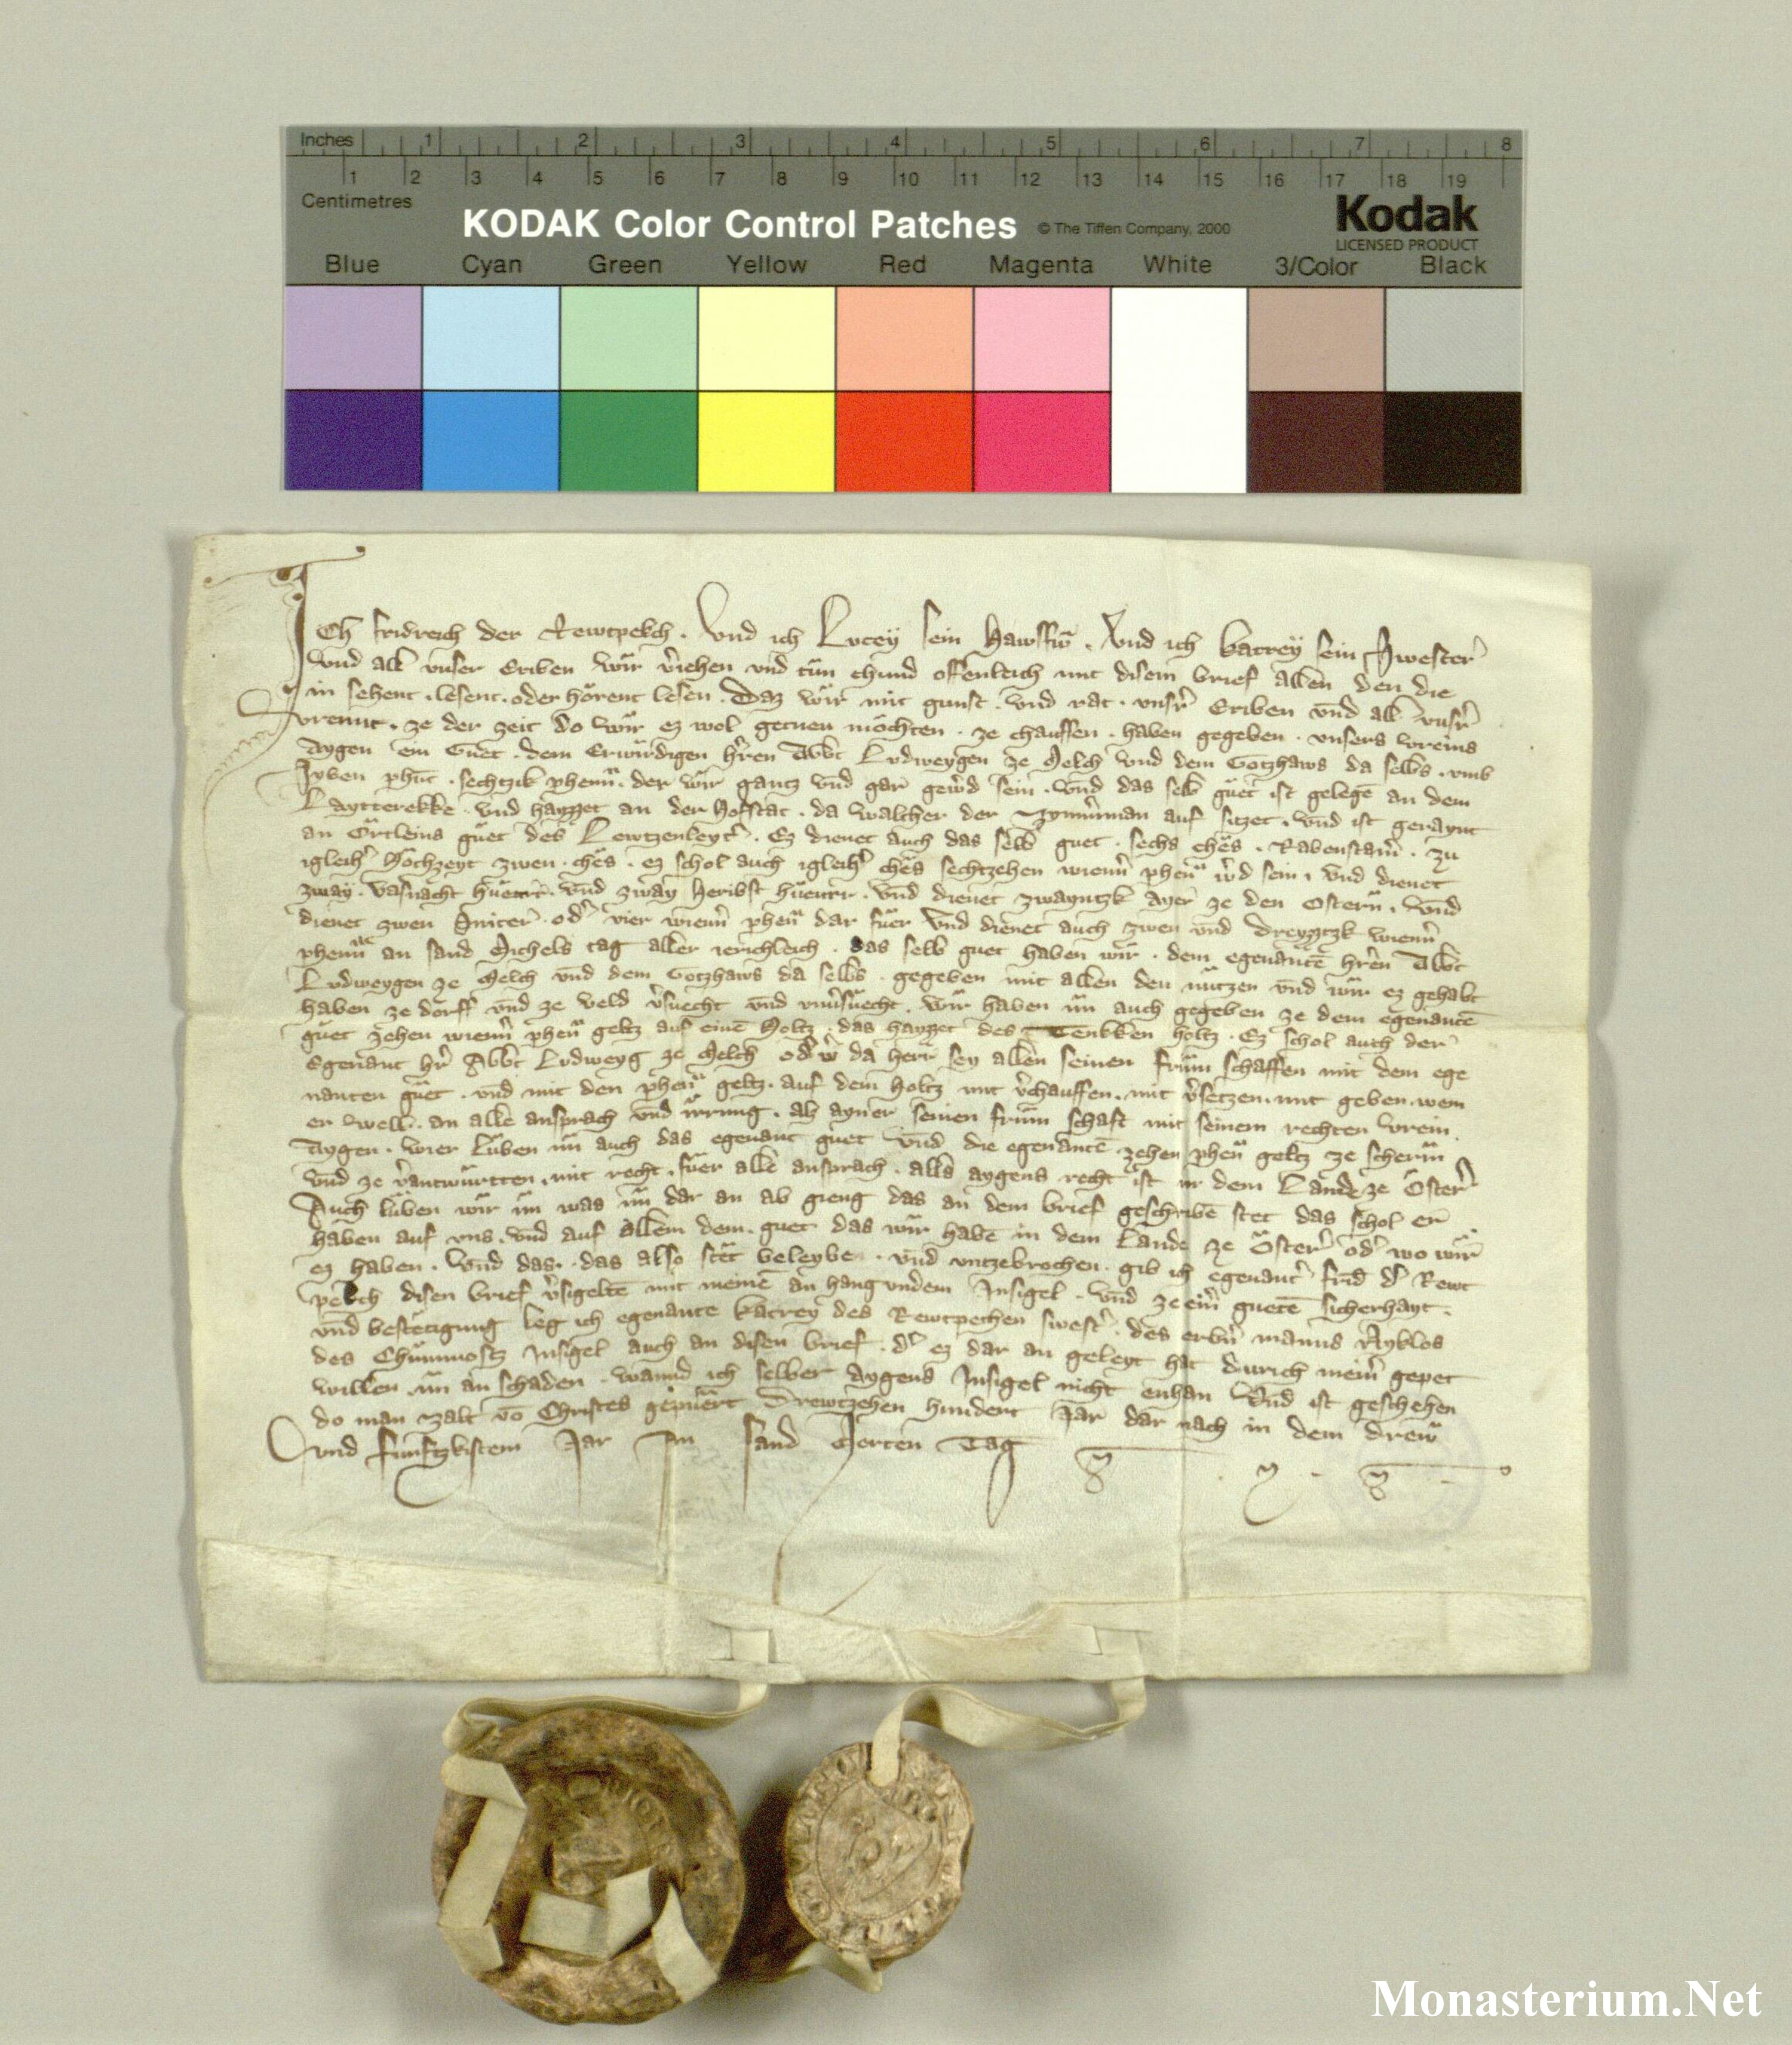 Inches 1 2 3 4 5 6 7 8
1 2 3 4 5 6 7 8 9 10 11 12 13 14 15 16 17 18 19
Centimetres
KODAK Color Control Patches © The Tiffen Company, 2000 Kodak
LICENSED PRODUCT
Blue Cyan Green Yellow Red Magenta White 3/Color Black
Ich fridreich der Rewtpekch. Vnd ich Lvceÿ sein Hawsfrw̄. Vnd ich katreÿ sein Swester̄
Vnd all vnser Eriben wir v̄iehen vnd tün chund offenleich mit disem brief allen den die
in sehent. lesent. oder hörent lesen. Daz wir mit gunst. vnd rat. vnsr̄ Eriben vnd all vnsr̄
vreunt. ze der zeit do wir ez wol getuen möchten. ze chauffen. haben gegeben. vnsers vreins
Aygen ein Guet. dem Erwirdigen hr̄en Abbt Lvdweygen ze Melch vnd dem Gotzhaws da selbs. vmb
Syben phūt. sechtzik phenn̄. der wir gantz vnd gar gew̄d sein. Vnd das selb guet ist gelegē an dem
Laytterekke. vnd hayzzet an der Hofstat. da walcher der zymm̄man auf sitzet. vnd ist geraynt
an Örtleins guet des Lewtzenleyt̄. Ez dienet auch das selb guet. sechs ches. Rabenstain̄. zu
igleich̄ Hochzeyt zwen. ches. ez schol auch igleich̄ ches sechtzehen wienn̄ phen̄ w̄d sein. vnd dienet
zway. vasnacht hüenr̄. vnd zway heribst hüenr̄. vnd dienet zwayntzk ayer ze den Ostern̄. Vnd
dienet zwen Sniter. od̄ vier wienn̄ phen̄ dar fuer vnd dienet auch zwen vnd dreyzztzk wienn̄
phenn̄ an sand Michels tag aller ierichleich. das selb guet haben wir. dem egenantē hr̄en Abbt
Lvdweygen ze Melch vnd dem Gotzhaws da selbs. gegeben mit allen den nützen vnd wir ez gehabt
haben ze dorff vnd ze veld v̄suecht vnd vnv̄suecht. wir haben im auch gegeben ze dem egenantē
guet zehen wienn̄ phen̄ geltz auf einē Holtz. das hayzzet des Tenkken holtz. Ez schol auch der
Egenant hr̄ Abbt Lvdweyg ze Melch od̄ w̄ da herr sey allen seinen frum̄ schaffen mit dem ege
nanten guet. vnd mit den phen̄ geltz. auf dem holtz mit v̄chauffen. mit v̄setzen. mit geben. wem
er well. an alle ansprach vnd irrung. als ayner seinen frum̄ schaft mit seinem rechten vrein
Aygen. Wier luben im auch das egenant guet vnd die egenantē zehen phen̄ geltz ze scherm̄
vnd ze v̄antwurtten. mit recht. fuer alle ansprach. alls aygens recht ist in dem Lande ze Öster̄
Auch luben wir im was im dar an ab gieng das an dem brief geschribē stet das schol er
haben auf vns. vnd auf allem dem. guet das wir habē in dem Lande ze Öster̄ od̄ wo wir
ez haben. Vnd das. das also stet beleybe. vnd vntzebrochen. gib ich egenant̄ frid̄ d̄ Rewt
pekch disen brief v̄sigeltē mit meinē an hangvndem Insigel. vnd ze ein̄ guetē sicherhayt.
vnd bestetigung leg ich egenante katrey des Rewtpechen swest̄. des erbn̄ manns Nyklos
des Chummostz Insigel auch an disen brief. d̄ ez dar an geleyt hat durich mein̄ gepet
willen im an schaden. wannd ich selber Aygens Insigel nicht enhan Vnd ist geschehen
do man zalt vō Christes gepuert Drewtzehen hundert Jar dar nach in dem drew
vnd fünftzkistem Jar An sand Jorien Tag
Monasterium.Net